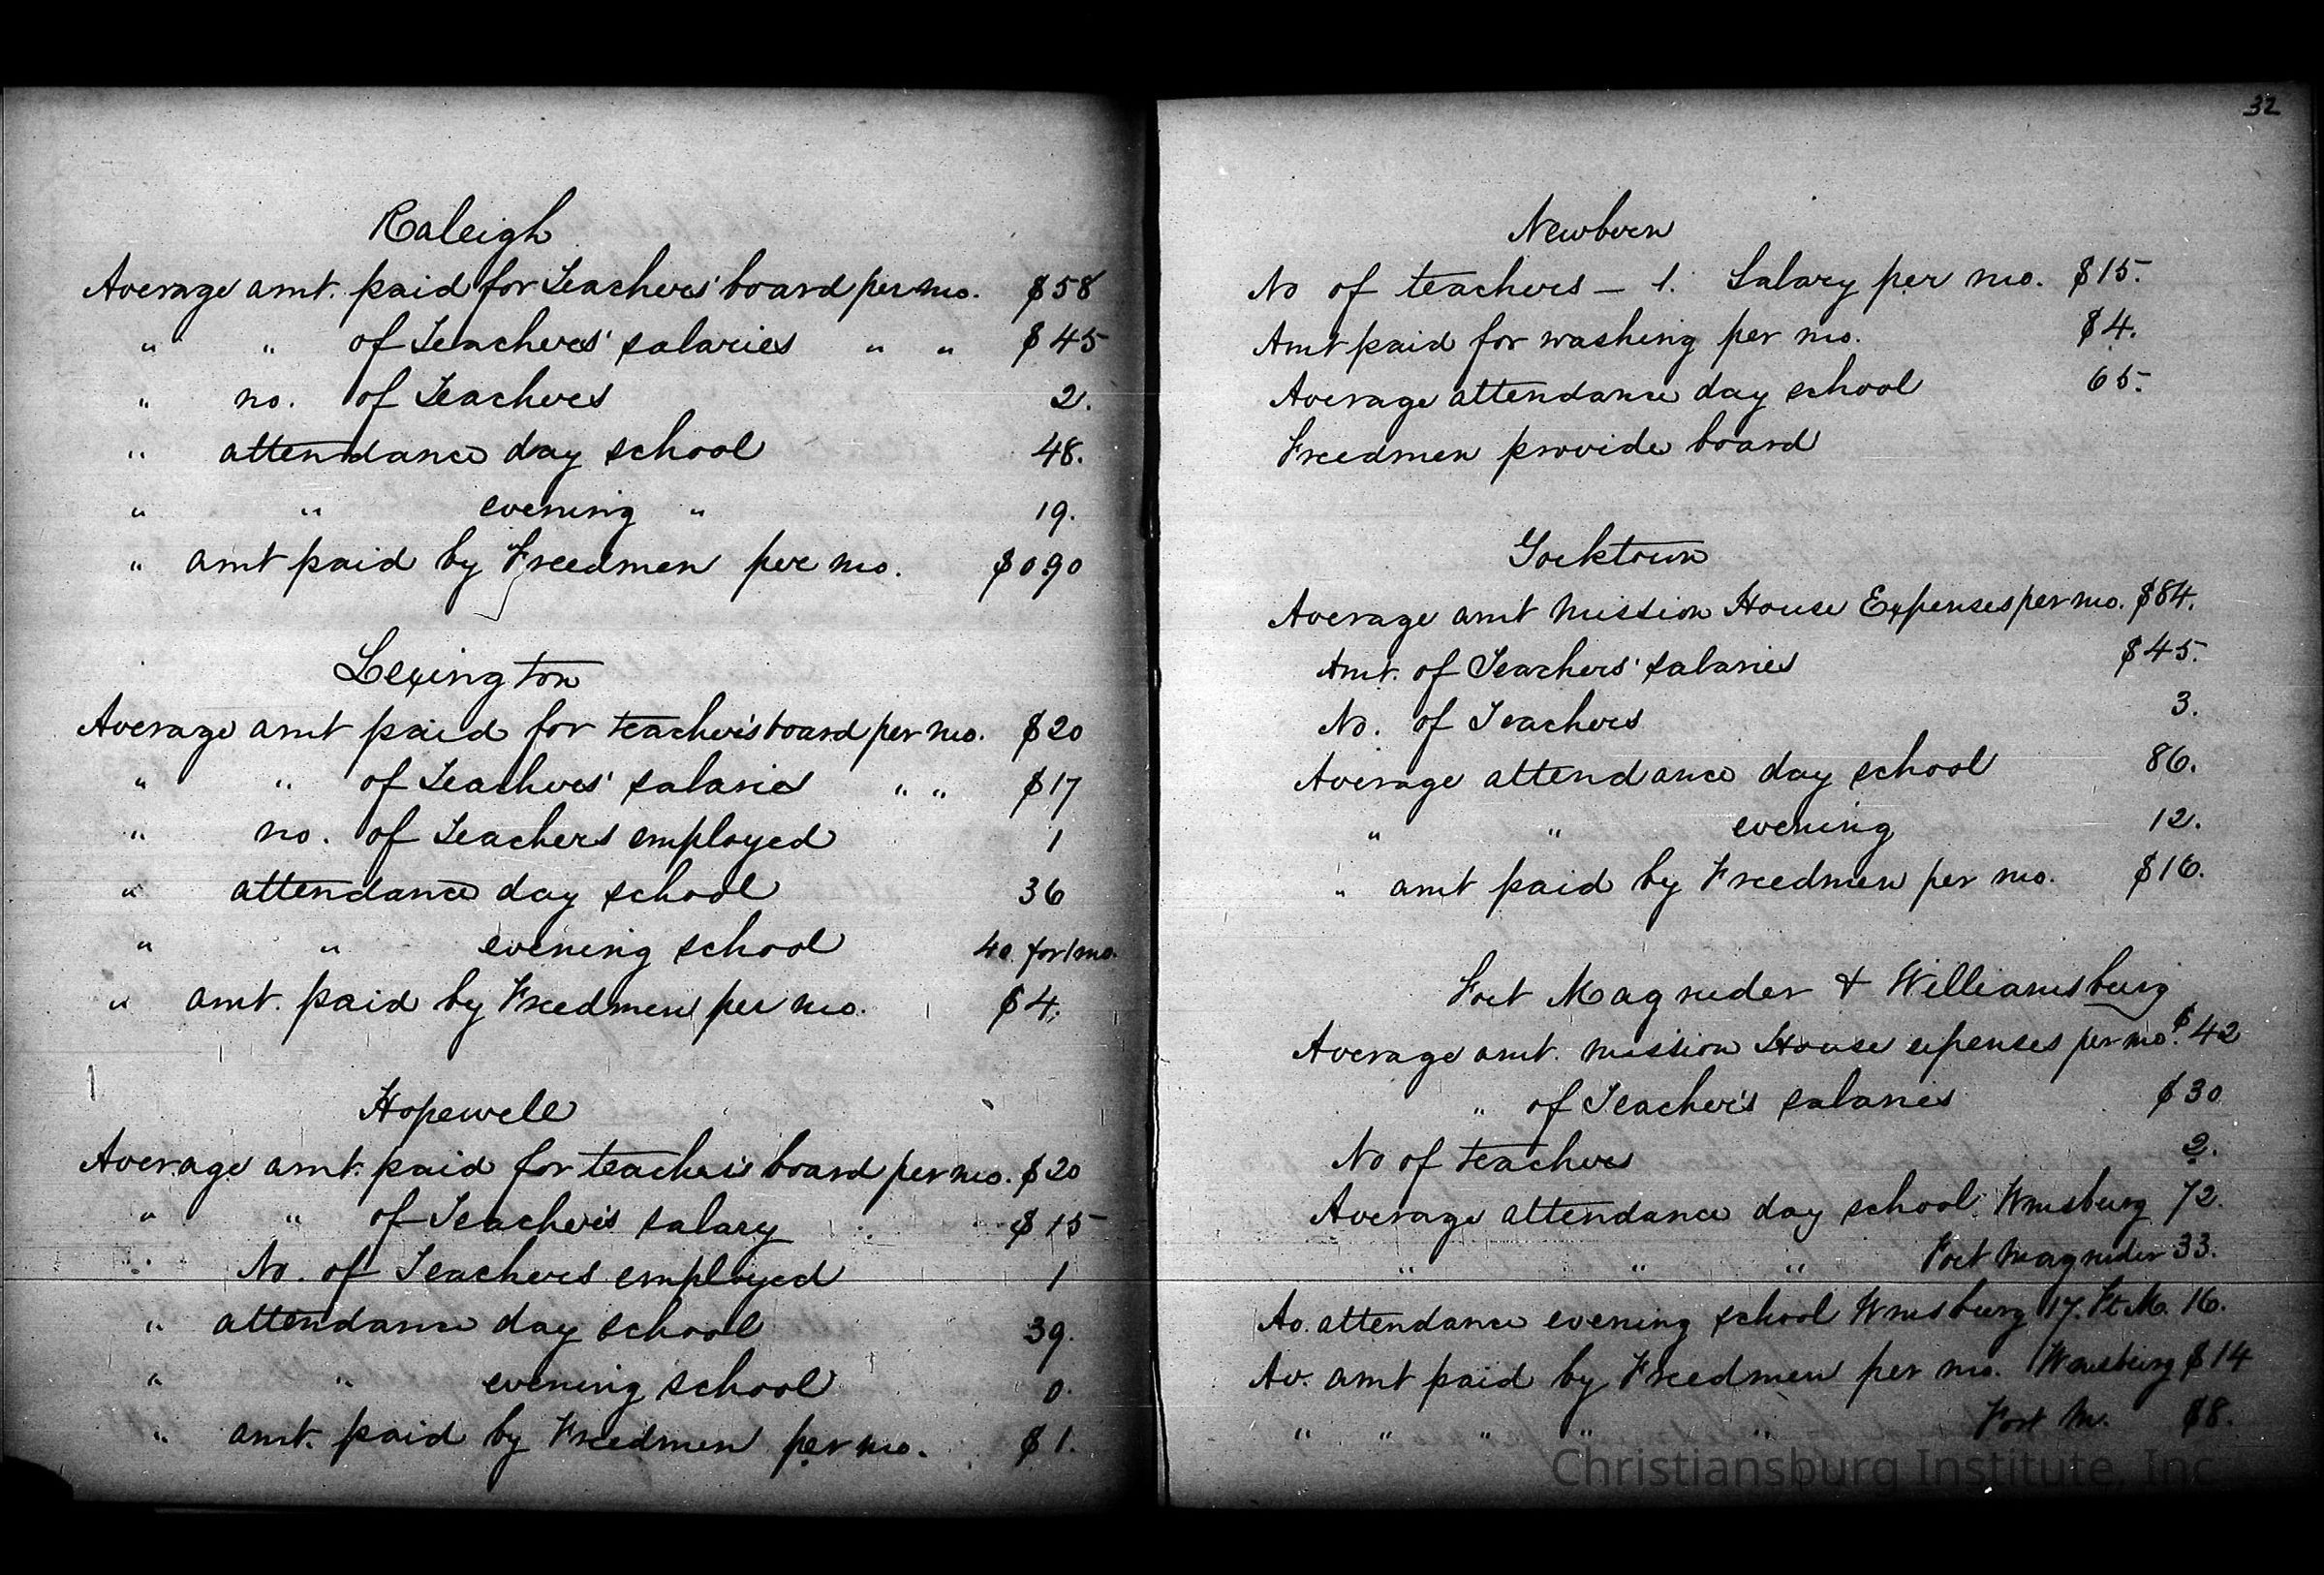 Raleigh
Average amt. paid for Teachers' board per mo. $58
" " of Teachers' salaries " " $45
" no. of Teachers 2.
" attendance day school 48.
" " evening " 19.
" amt paid by Freedmen per mo. $0.90
Lexington
Average amt paid for teacher's board per mo. $20
" " of Teachers' salaries " " $17
" no. of Teachers employed 1
" attendance day school 36
" " evening school 40 for 1 mo.
" amt. paid by Freedmen per mo. $4.
Hopewell
Average amt. paid for teacher's board per mo. $20
" " of Teacher's salary $15
" No. of Teachers employed 1
" attendance day school 39.
" " evening school 0.
" amt. paid by Freedmen per mo. $1.
32
Newbern
No of teachers — 1. Salary per mo. $15.
Amt paid for washing per mo. $4.
Average attendance day school 65.
Freedmen provide board
Yorktown
Average amt Mission House Expenses per mo. $84.
Amt. of Teachers' salaries $45.
No. of Teachers 3.
Average attendance day school 86.
" " evening 12.
" amt paid by Freedmen per mo. $16.
Fort Magruder & Williamsburg
Average amt. Mission House expenses per mo. $42
" of Teacher's salaries $30
No of teachers 2.
Average attendance day school Wmsburg 72.
" " " Fort Magruder 33.
Av. attendance evening school Wmsburg 17. Ft. M. 16.
Av. amt paid by Freedmen per mo. Wmsburg $14
" " " " " Fort M. $8.
Christiansburg Institute, Inc